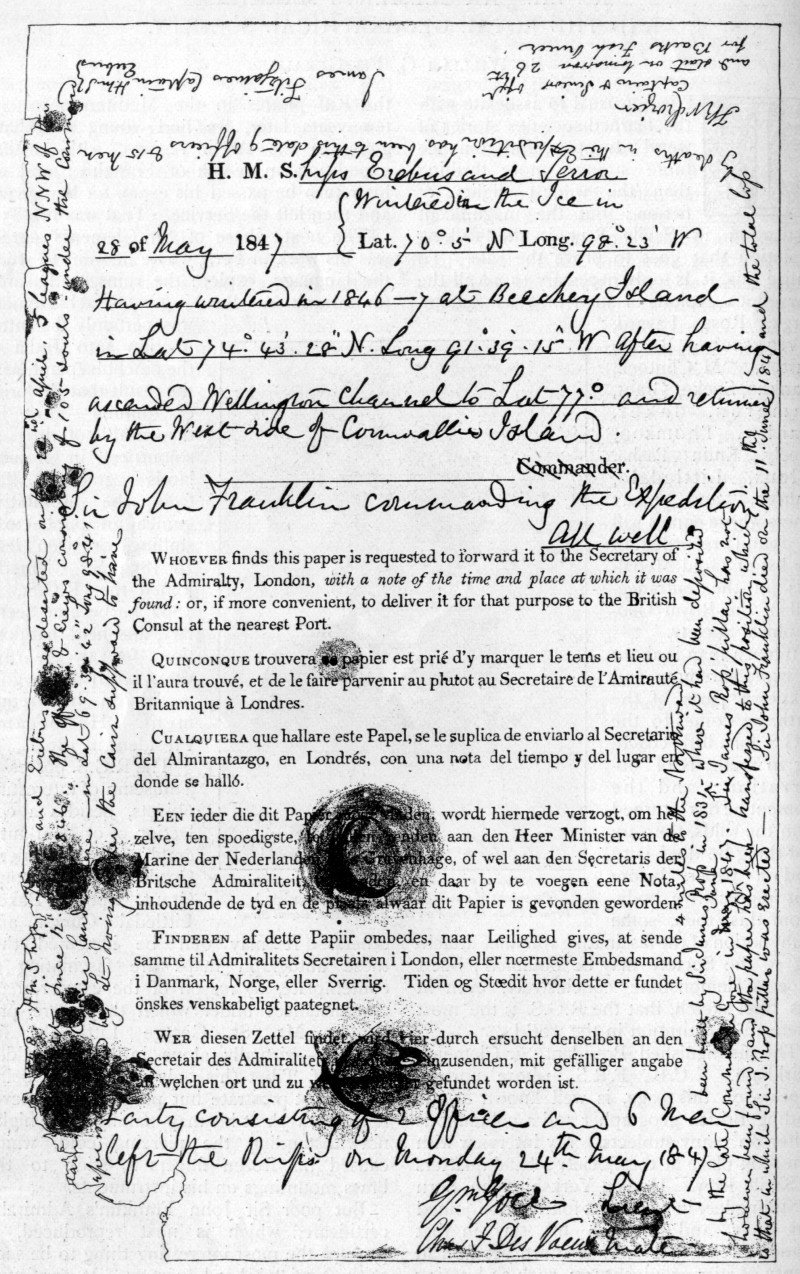 H. M. Ships Erebus and Terror
Wintered in the Ice in
28 of May 1847 Lat. 70°.5' N Long. 98°.23' W
Having wintered in 1846–7 at Beechey Island
in Lat 74°.43'.28" N. Long 91°.39'.15" W After having
ascended Wellington Channel to Lat 77° and returned
by the West side of Cornwallis Island
Commander.
Sir John Franklin commanding the Expedition
All well
WHOEVER finds this paper is requested to forward it to the Secretary of
the Admiralty, London, with a note of the time and place at which it was
found: or, if more convenient, to deliver it for that purpose to the British
Consul at the nearest Port.
QUINCONQUE trouvera ce papier est prié d'y marquer le tems et lieu ou
il l'aura trouvé, et de le faire parvenir au plutot au Secretaire de l'Amirauté
Britannique à Londres.
CUALQUIERA que hallare este Papel, se le suplica de enviarlo al Secretario
del Almirantazgo, en Londrés, con una nota del tiempo y del lugar en
donde se halló.
EEN ieder die dit Papier vinden, wordt hiermede verzogt, om het
zelve, ten spoedigste, te zenden aan den Heer Minister van de
Marine der Nederlanden Gravenhage, of wel aan den Secretaris der
Britsche Admiraliteit, en daar by te voegen eene Nota,
inhoudende de tyd en de plaats alwaar dit Papier is gevonden geworden
FINDEREN af dette Papiir ombedes, naar Leilighed gives, at sende
samme til Admiralitets Secretairen i London, eller nœrmeste Embedsmand
i Danmark, Norge, eller Sverrig. Tiden og Stœdit hvor dette er fundet
önskes venskabeligt paategnet.
WER diesen Zettel findet, wird hier-durch ersucht denselben an den
Secretair des Admiralitets einzusenden, mit gefälliger angabe
an welchen ort und zu gefundet worden ist.
Party consisting of 2 Officers and 6 Men
left the Ships on Monday 24th May 1847
Gm Gore Lieut
Chas F Des Voeux Mate
HMShips and Erebus were deserted on the 22nd April, 5 leagues NNW of this
since 1846. The Officers & Crews consisting of 105 souls - under the command
Crozier landed here - in Lat 69°.37'.42" Long 98°.41'
paper was by Lt Irving under the Cairn supposed to have
4 miles to the Northward
been built by Sir James Ross in 1831 - where it had been deposited
by the late Commander Gore in May 1847 June. Sir James Ross' pillar has not
however been found and the paper has been transferred to this position which
is that in which Sir J. Ross' pillar was erected - Sir John Franklin died on the 11th June 1847 and the total loss
by deaths in the Expedition has been to this date 9 officers & 15 men
James Fitzjames Captain HMS Erebus
Crozier
Captain & Senior Offr
and start on tomorrow 26th
for Backs Fish River